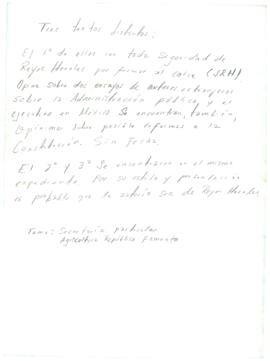 Tres textos distintos:
El 1º de ellos con toda seguridad de
Reyes Heroles por firmar al calce (JRH)
Opina sobre dos ensayos de autores extranjeros
sobre la Administración pública y el
ejecutivo en México. Se encuentran, también,
opiniones sobre posible reformas a la
Constitución. Sin fecha.
El 2º y 3º se encontraron en el mismo
expediente. Por su estilo y presentación
es probable que la autoría sea de Reyes Heroles.
Tema: Secretaría particular
Agricultura República Fomento